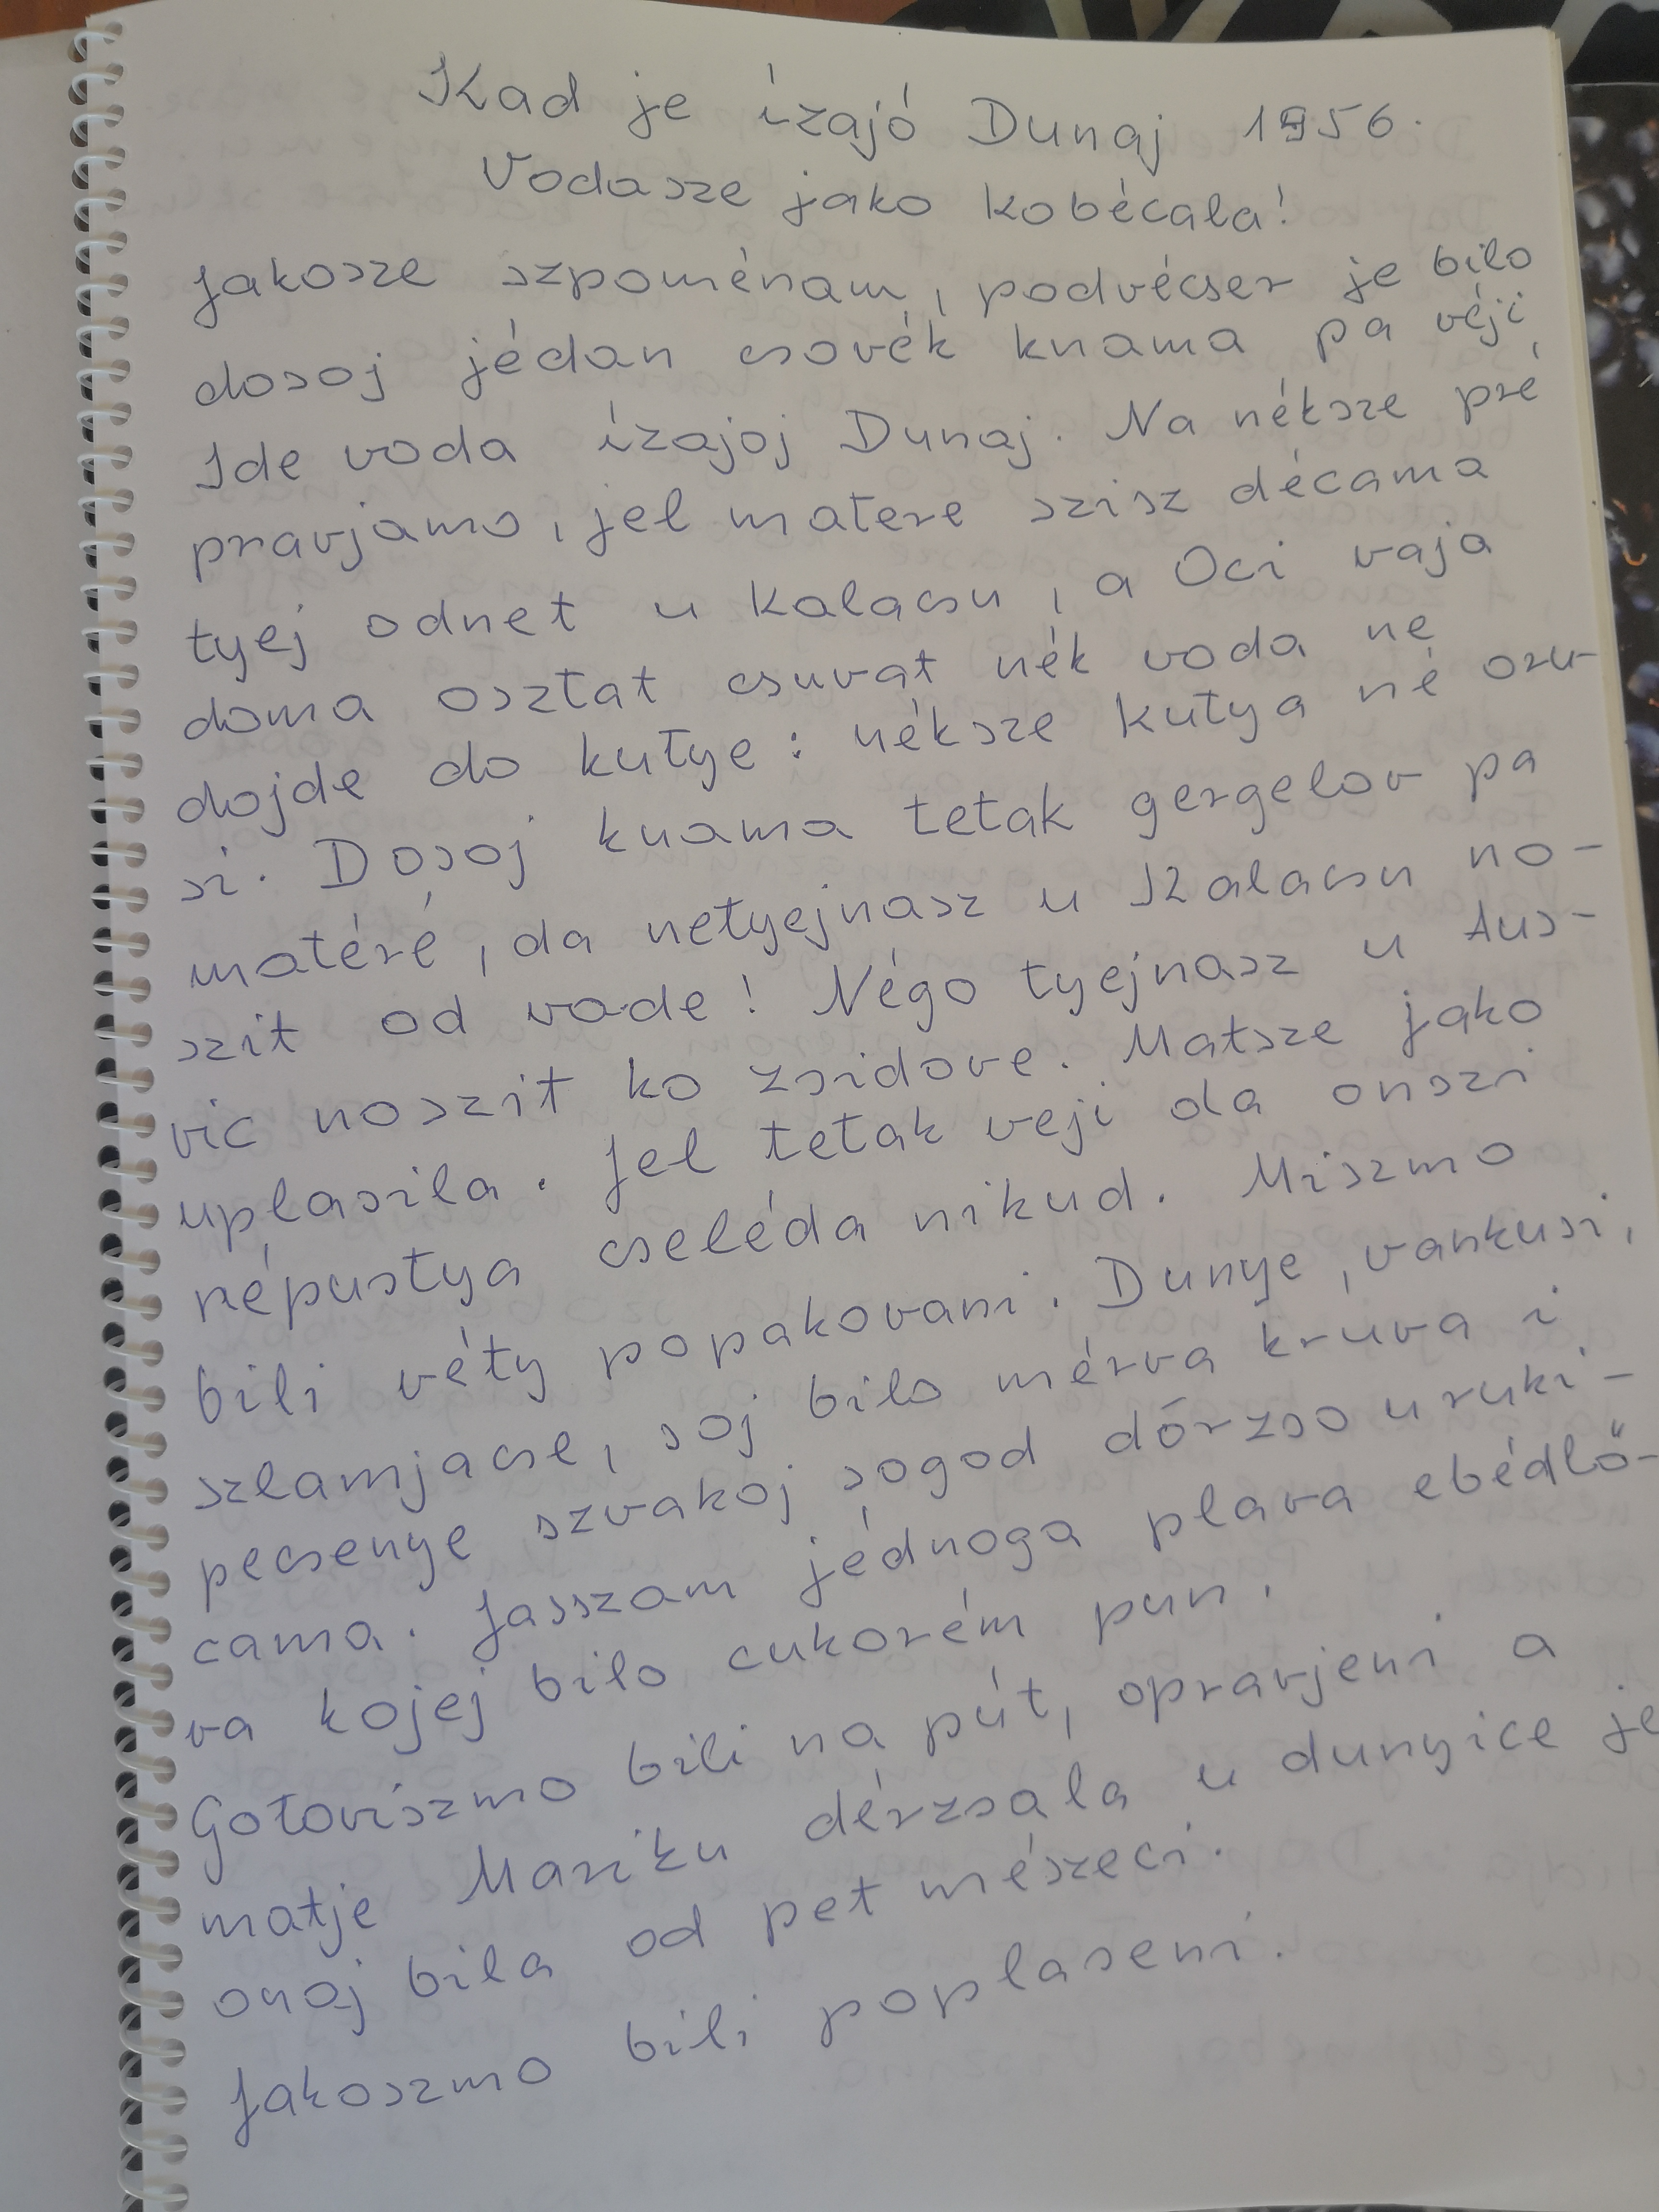 Kad je ízajó Dunaj 1956.
Vodasze jako kobécala!
Jakosze szpoménam, podvécser je bilo
dosoj jédan csovék knama pa véji,
Ide voda ízajoj Dunaj. Na néksze pré
pravjamo, jel matere szisz décama
tyej odnet u Kalacsu, a Oci vaja
doma osztat csuvat nék voda ne
dojde do kutye: néksze kutya né oru-
si. Dosoj knama tetak gergelov pa
matéré, da netyejnasz u Kalacsu no-
szit od vode! Négo tyejnasz u Aus-
vic noszit ko zsidove. Matsze jako
uplasila. Jel tetak veji da onszi
népustya cseléda nikud. Miszmo
bili véty popakovani. Dunye, vankusi,
szlamjacse, soj bilo mérva kruva i
pecsenye szvakoj sogod dórzso u ruki-
cama. Jasszam jédnoga plava ebédlő-
va kojej bilo cukorém pun.
Gotoviszmo bili na pút, opravjeni a
matje Mariku dérzsala u dunyice je
onaj bila od pet mészeci.
Jakoszmo bili poplaseni.